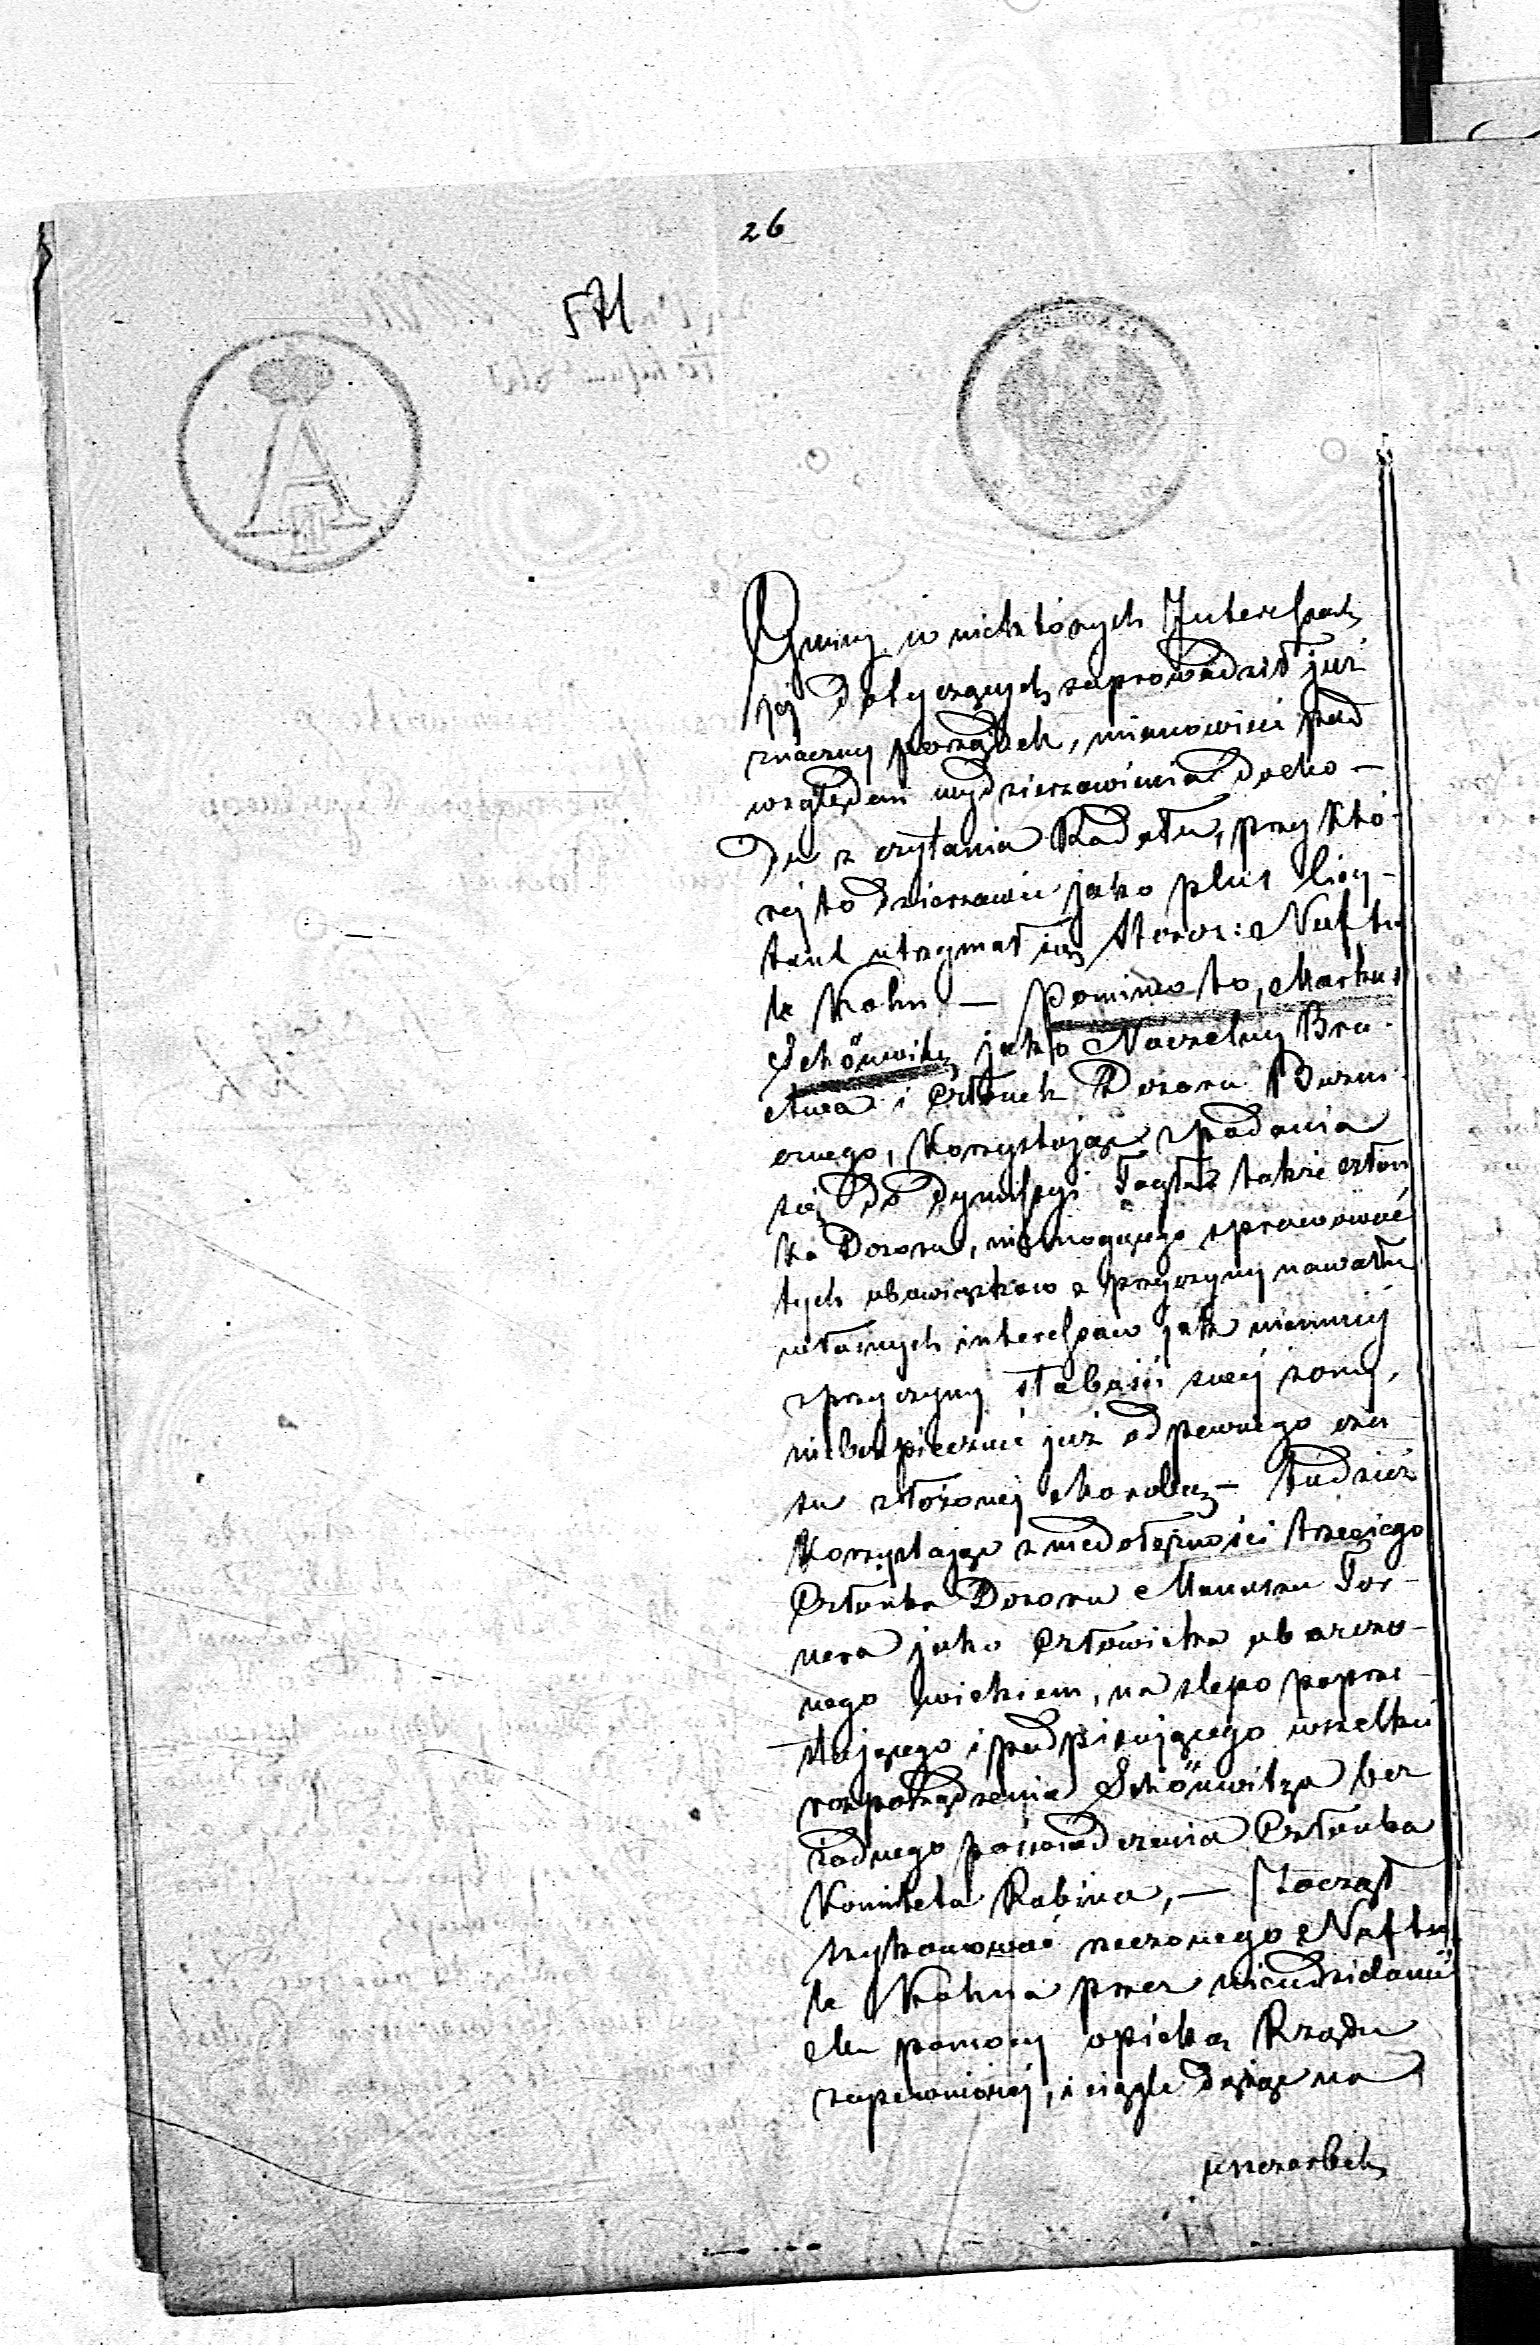 26
571
Gminy w niektórych Interessach
jéj dotyczących zaprowadził już
znaczny porządek, mianowicie pod
względem wydzierżawienia docho-
du z czytania Rodału, przy któ-
réj to dzierżawie jako plus licy-
tant utrzymał się Staroz: Naftu
le Kohn — Pomimo to, Markus
Schönwitz, jako Naczelny Bra-
ctwa i Członek Dozoru Bużni-
cznego, Korzystając z podania
się do dymissyi także człon
ka Dozoru, niemogącego sprawować
tych obowiązków z przyczyny nawału
własnych interessów jak niemniéj
z przyczyny słabości swéj żony,
niebezpiecznie już od pewnego cza
su złożonéj chorobą — tudzież
Korzystając z niedołężności trzeciego
Członka Dozoru Manasza Tor-
nera jako Człowieka obarczo-
nego wiekiem, na slepo poprze-
stającego i podpisującego wszelkie
rozporządzenia Schönwitza bez
żadnego poświadczenia Członka
Komiteta Rabina, — Zaczął
szykanować rzeczonego Naftu
le Kohna przez nieudzielanie
mu pomocy opieką Rządu
zapewnionéj, i ciągle dążąc na
uszczerbek